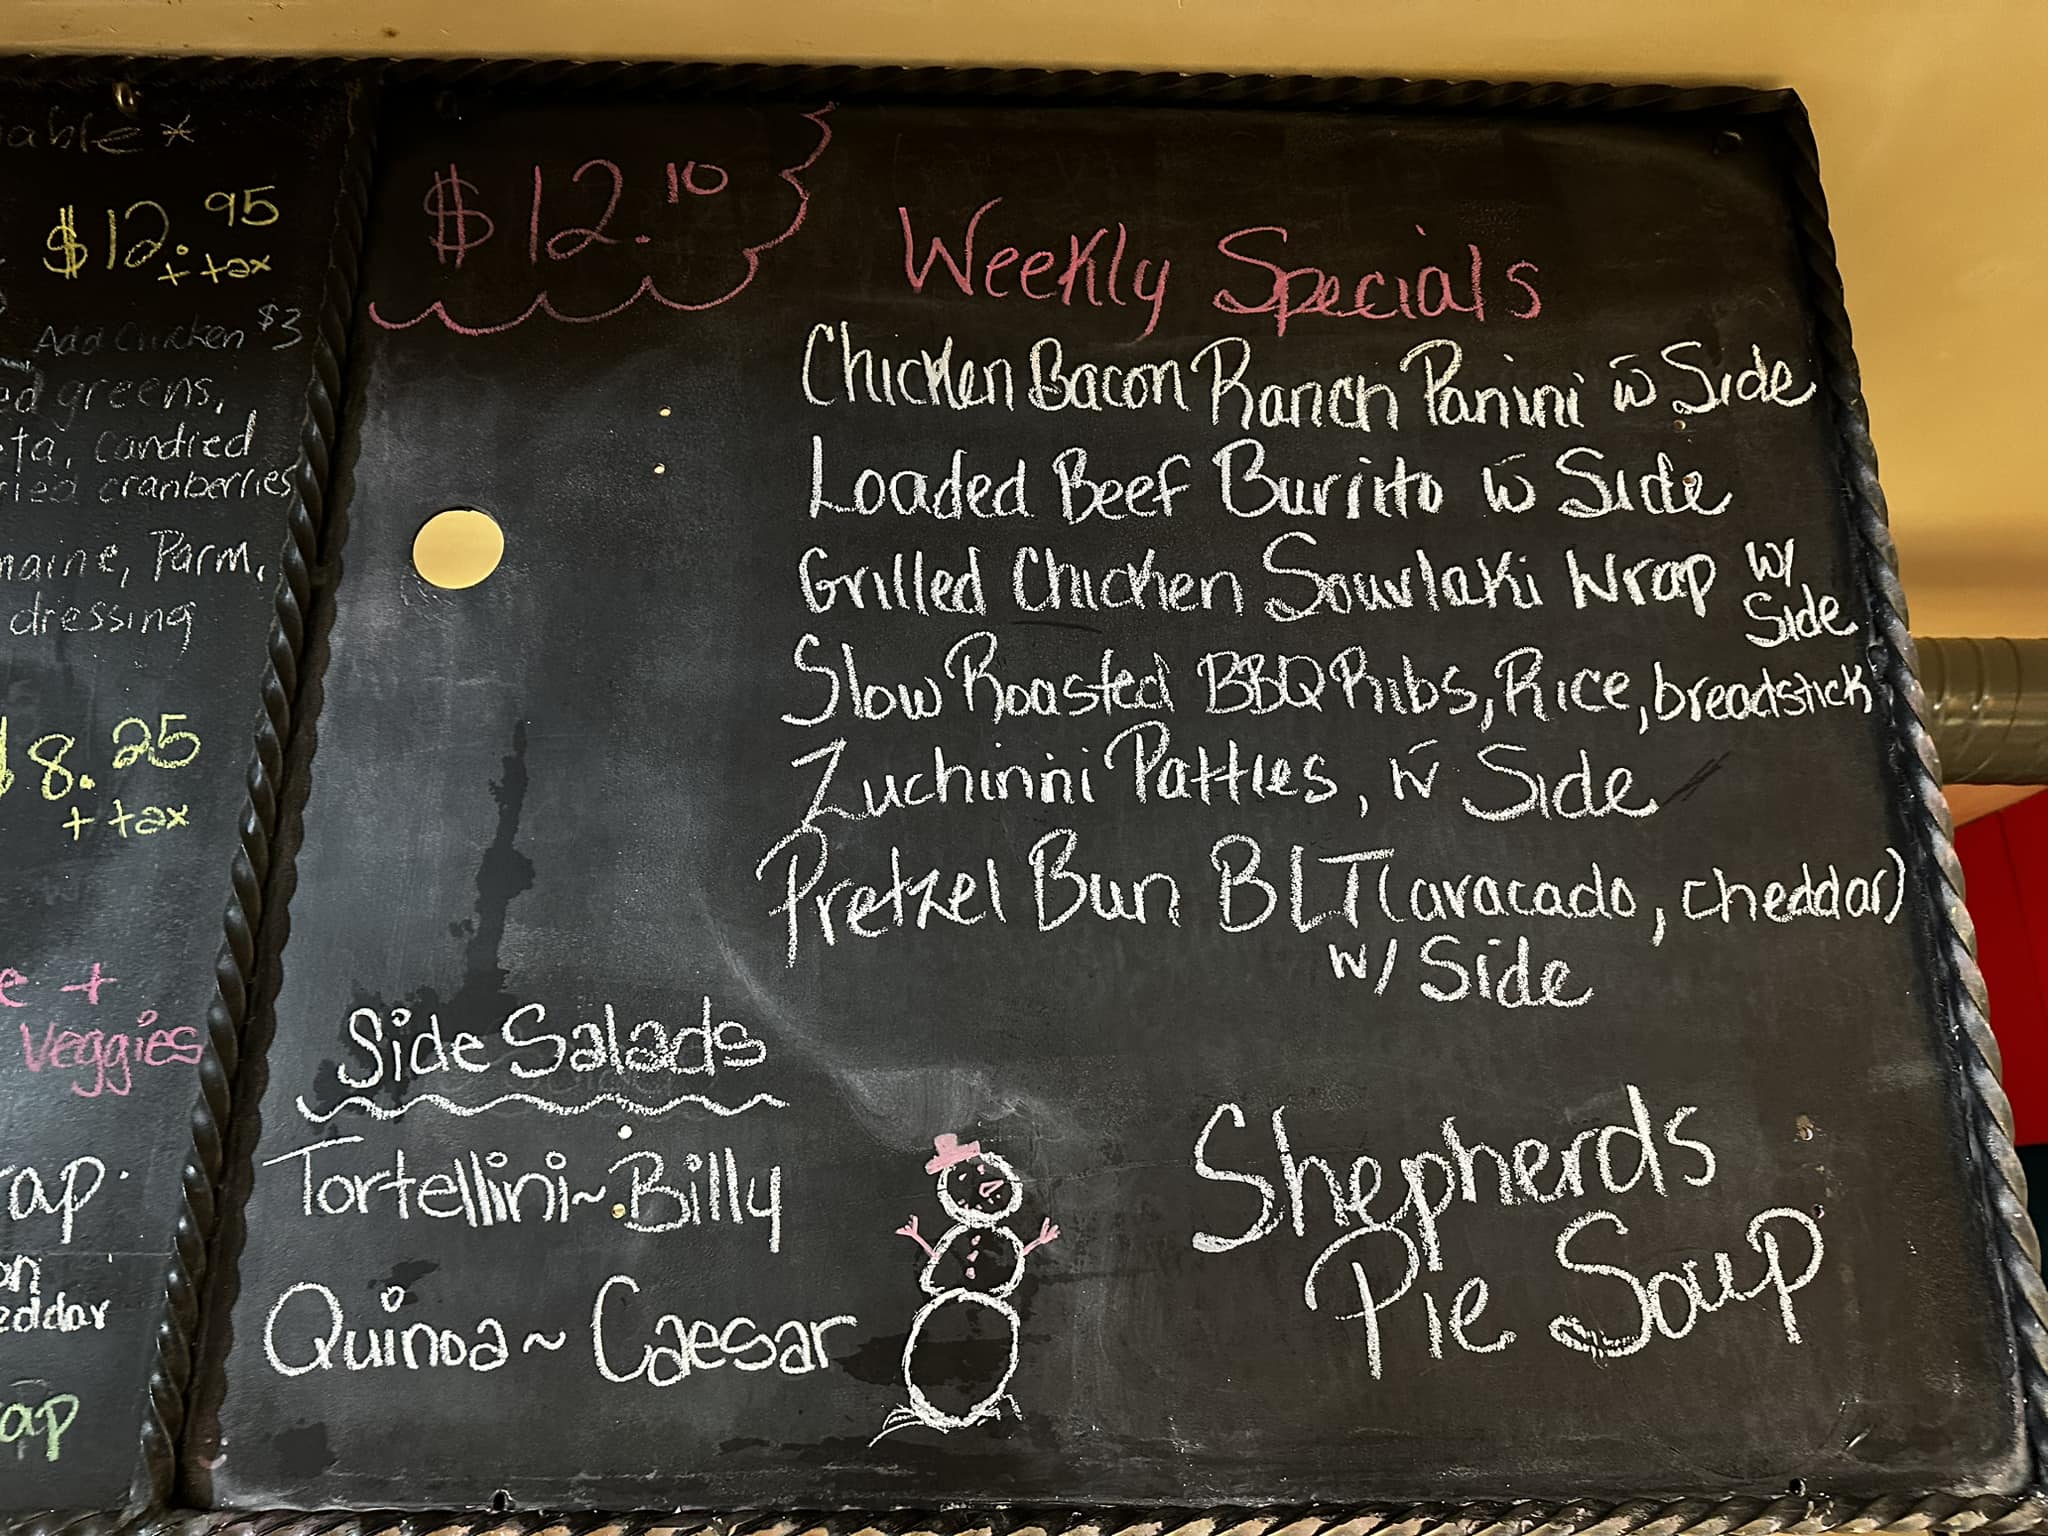 $12.95
+ tax
Add Chicken $3
greens,
candied
cranberries
Parm,
dressing
$8.25
+ tax
+
Veggies
$12.10
Weekly Specials
Chicken Bacon Ranch Panini w̄ Side
Loaded Beef Burrito w̄ Side
Grilled Chicken Sourlaki Wrap w/
Side
Slow Roasted BBQ Ribs, Rice, breadstick
Zuchinni Patties, w̄ Side
Pretzel Bun BLT (avacado, cheddar)
w/ Side
Side Salads
Tortellini~Billy
Quinoa~Caesar
Shepherds
Pie Soup